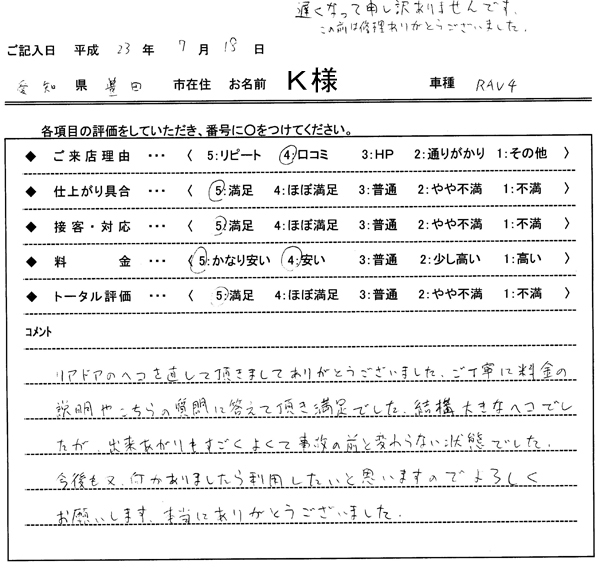 遅くなって申し訳ありませんです.
この前は修理ありがとうございました.
ご記入日 平成 23 年 7 月 18 日
愛知 県 豊田 市在住 お名前 K様 車種 RAV4
各項目の評価をしていただき、番号に○をつけてください。
◆ ご来店理由 ・・・ 〈 5:リピート 4:口コミ 3:HP 2:通りがかり 1:その他 〉
◆ 仕上がり具合 ・・・ 〈 5:満足 4:ほぼ満足 3:普通 2:やや不満 1:不満 〉
◆ 接客・対応 ・・・ 〈 5:満足 4:ほぼ満足 3:普通 2:やや不満 1:不満 〉
◆ 料金 ・・・ 〈 5:かなり安い 4:安い 3:普通 2:少し高い 1:高い 〉
◆ トータル評価 ・・・ 〈 5:満足 4:ほぼ満足 3:普通 2:やや不満 1:不満 〉
コメント
リアドアのヘコを直して頂きましてありがとうございました.ご丁寧に料金の
説明やこちらの質問に答えて頂き満足でした.結構大きなヘコでし
たが 出来あがりもすごくよくて事故の前と変わらない状態でした.
今後も又、何かありましたら利用したいと思いますのでよろしく
お願いします.本当にありがとうございました.